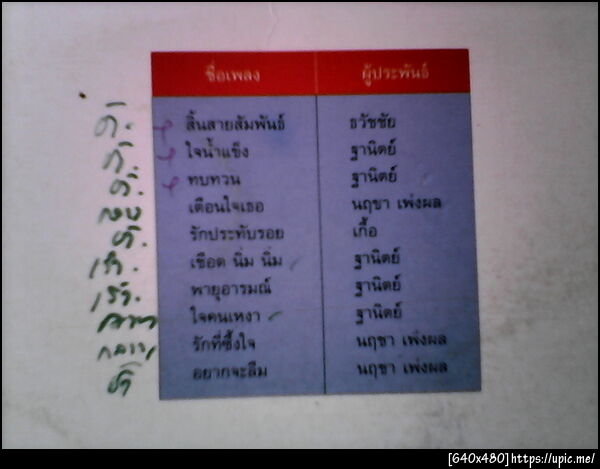 ชื่อเพลง ผู้ประพันธ์
สิ้นสายสัมพันธ์ ธวัชชัย
ใจน้ำแข็ง ฐานิตย์
ทบทวน ฐานิตย์
เตือนใจเธอ นฤชา เพ่งผล
รักประทับรอย เกื้อ
เชือด นิ่ม นิ่ม ฐานิตย์
พายุอารมณ์ ฐานิตย์
ใจคนเหงา ฐานิตย์
รักที่ซึ้งใจ นฤชา เพ่งผล
อยากจะลืม นฤชา เพ่งผล
[640x480]https://upic.me/